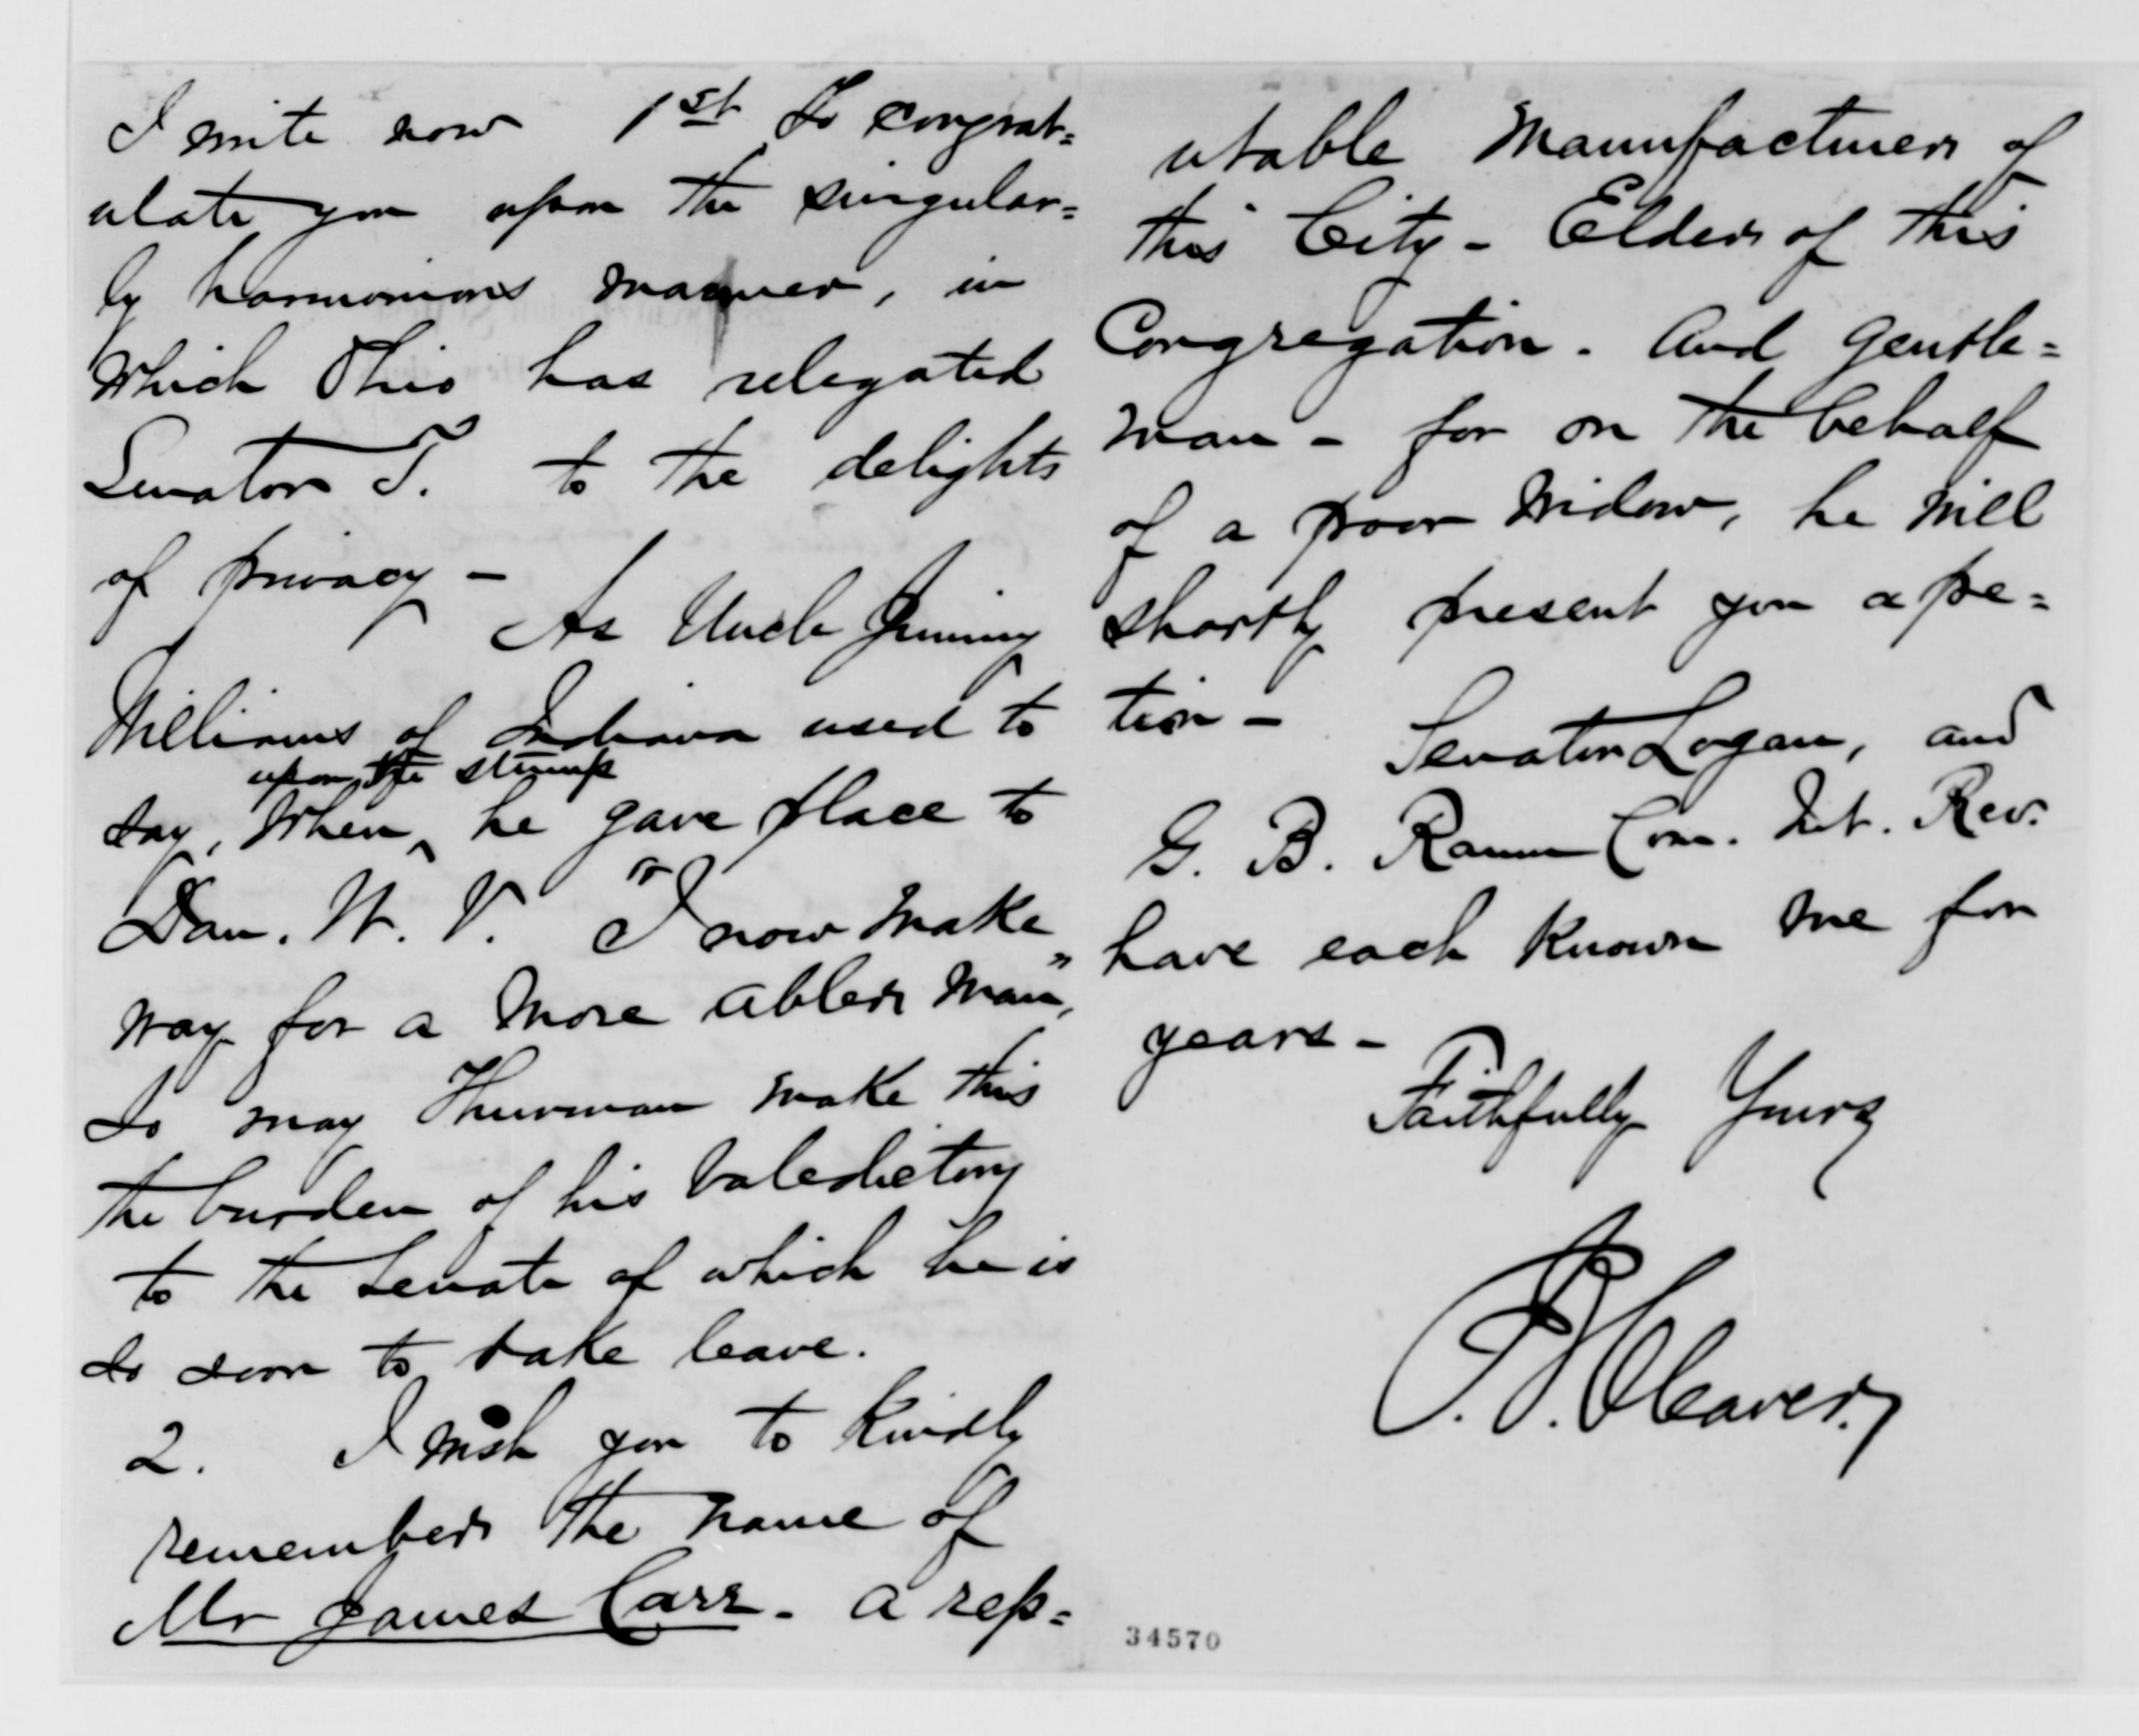 I write now 1st to congrat=
ulate you upon the singular=
ly harmonious manner, in
which Ohio has relegated
Senator T. to the delights
of privacy -
As Uncle Jimmy
Williams of Indiana used to
upon the stump
say, when ^ he gave place to
Dan. W. V. "I now make
way for a more abler man,"
So may Thurman make this
the burden of his valedictory
to the Senate of which he is
so soon to take leave.
2. I wish you to kindly
remember the name of
Mr James Carr. a rep=
utable manufacturer of
this City - Elder of this
Congregation. And gentle=
man - for on the behalf
of a poor widow, he will
shortly present you a pe=
tion -
Senator Logan, and
G. B. Raum Com. Int. Rev.
have each known me for
years -
Faithfully Yours
P. Cleaver.
34570